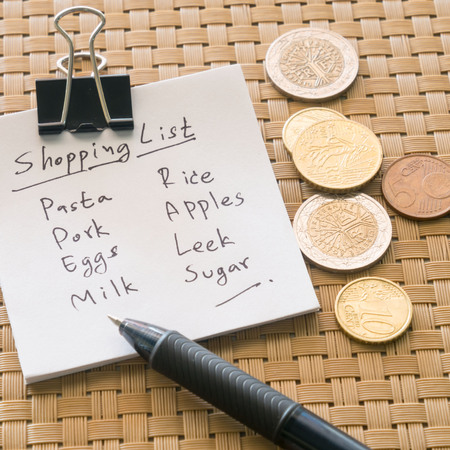 Shopping List
Pasta
Pork
Eggs
Milk
Rice
Apples
Leek
Sugar
10
5